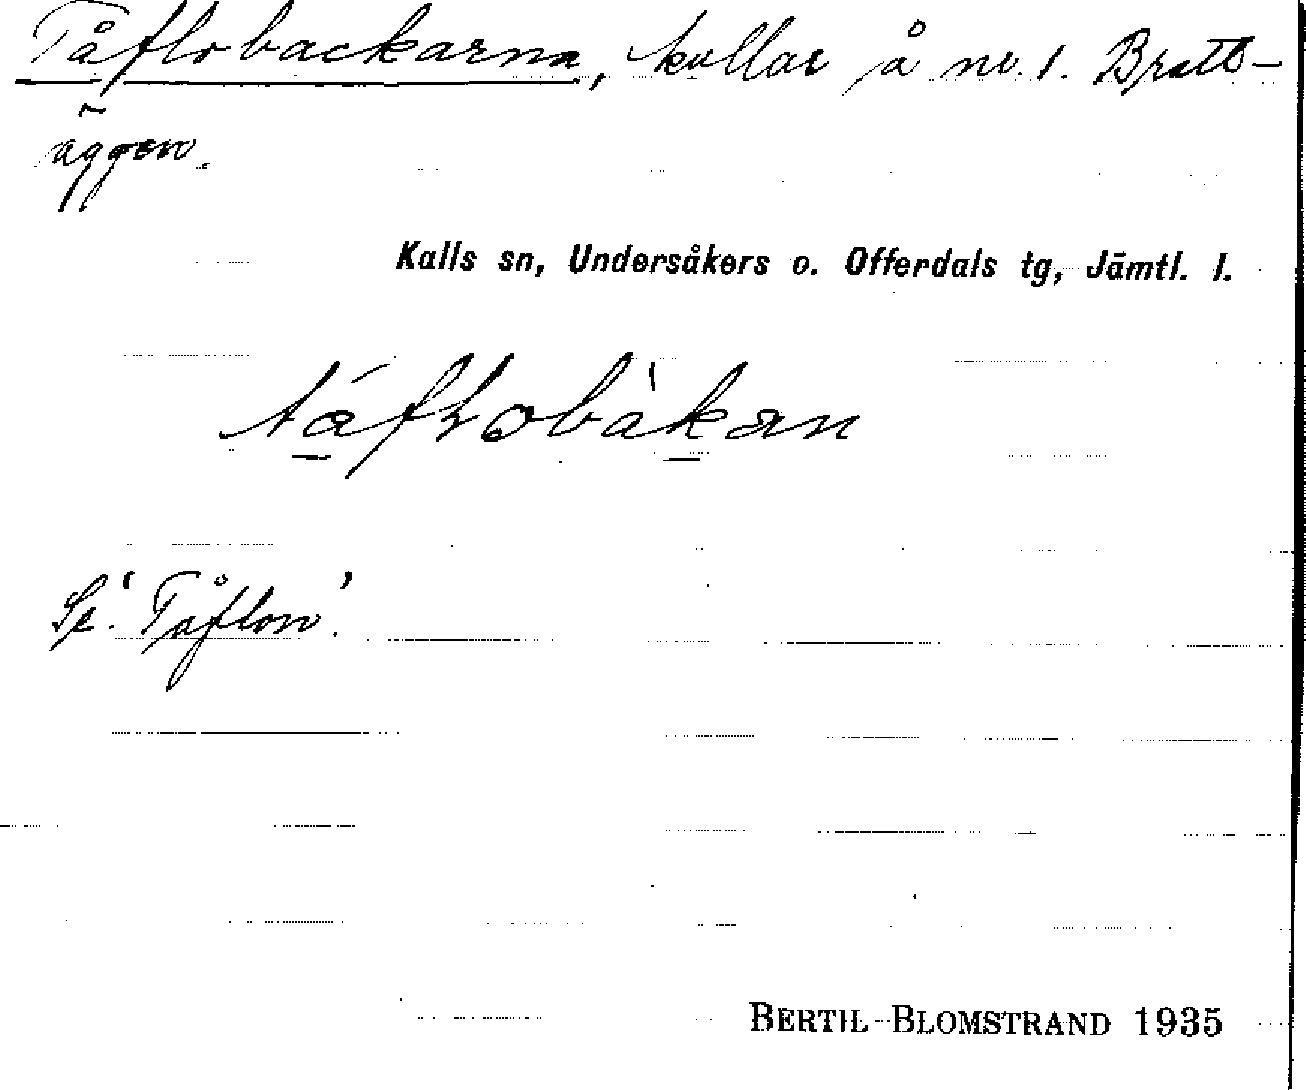 Tåflobackarna, kullar å nr. 1. Bratt-
äggen.
Kalls sn, Undersåkers o. Offerdals tg, Jämtl. l.
táfꞎobàkan
Se 'Tåflon'.
BERTIL BLOMSTRAND 1935